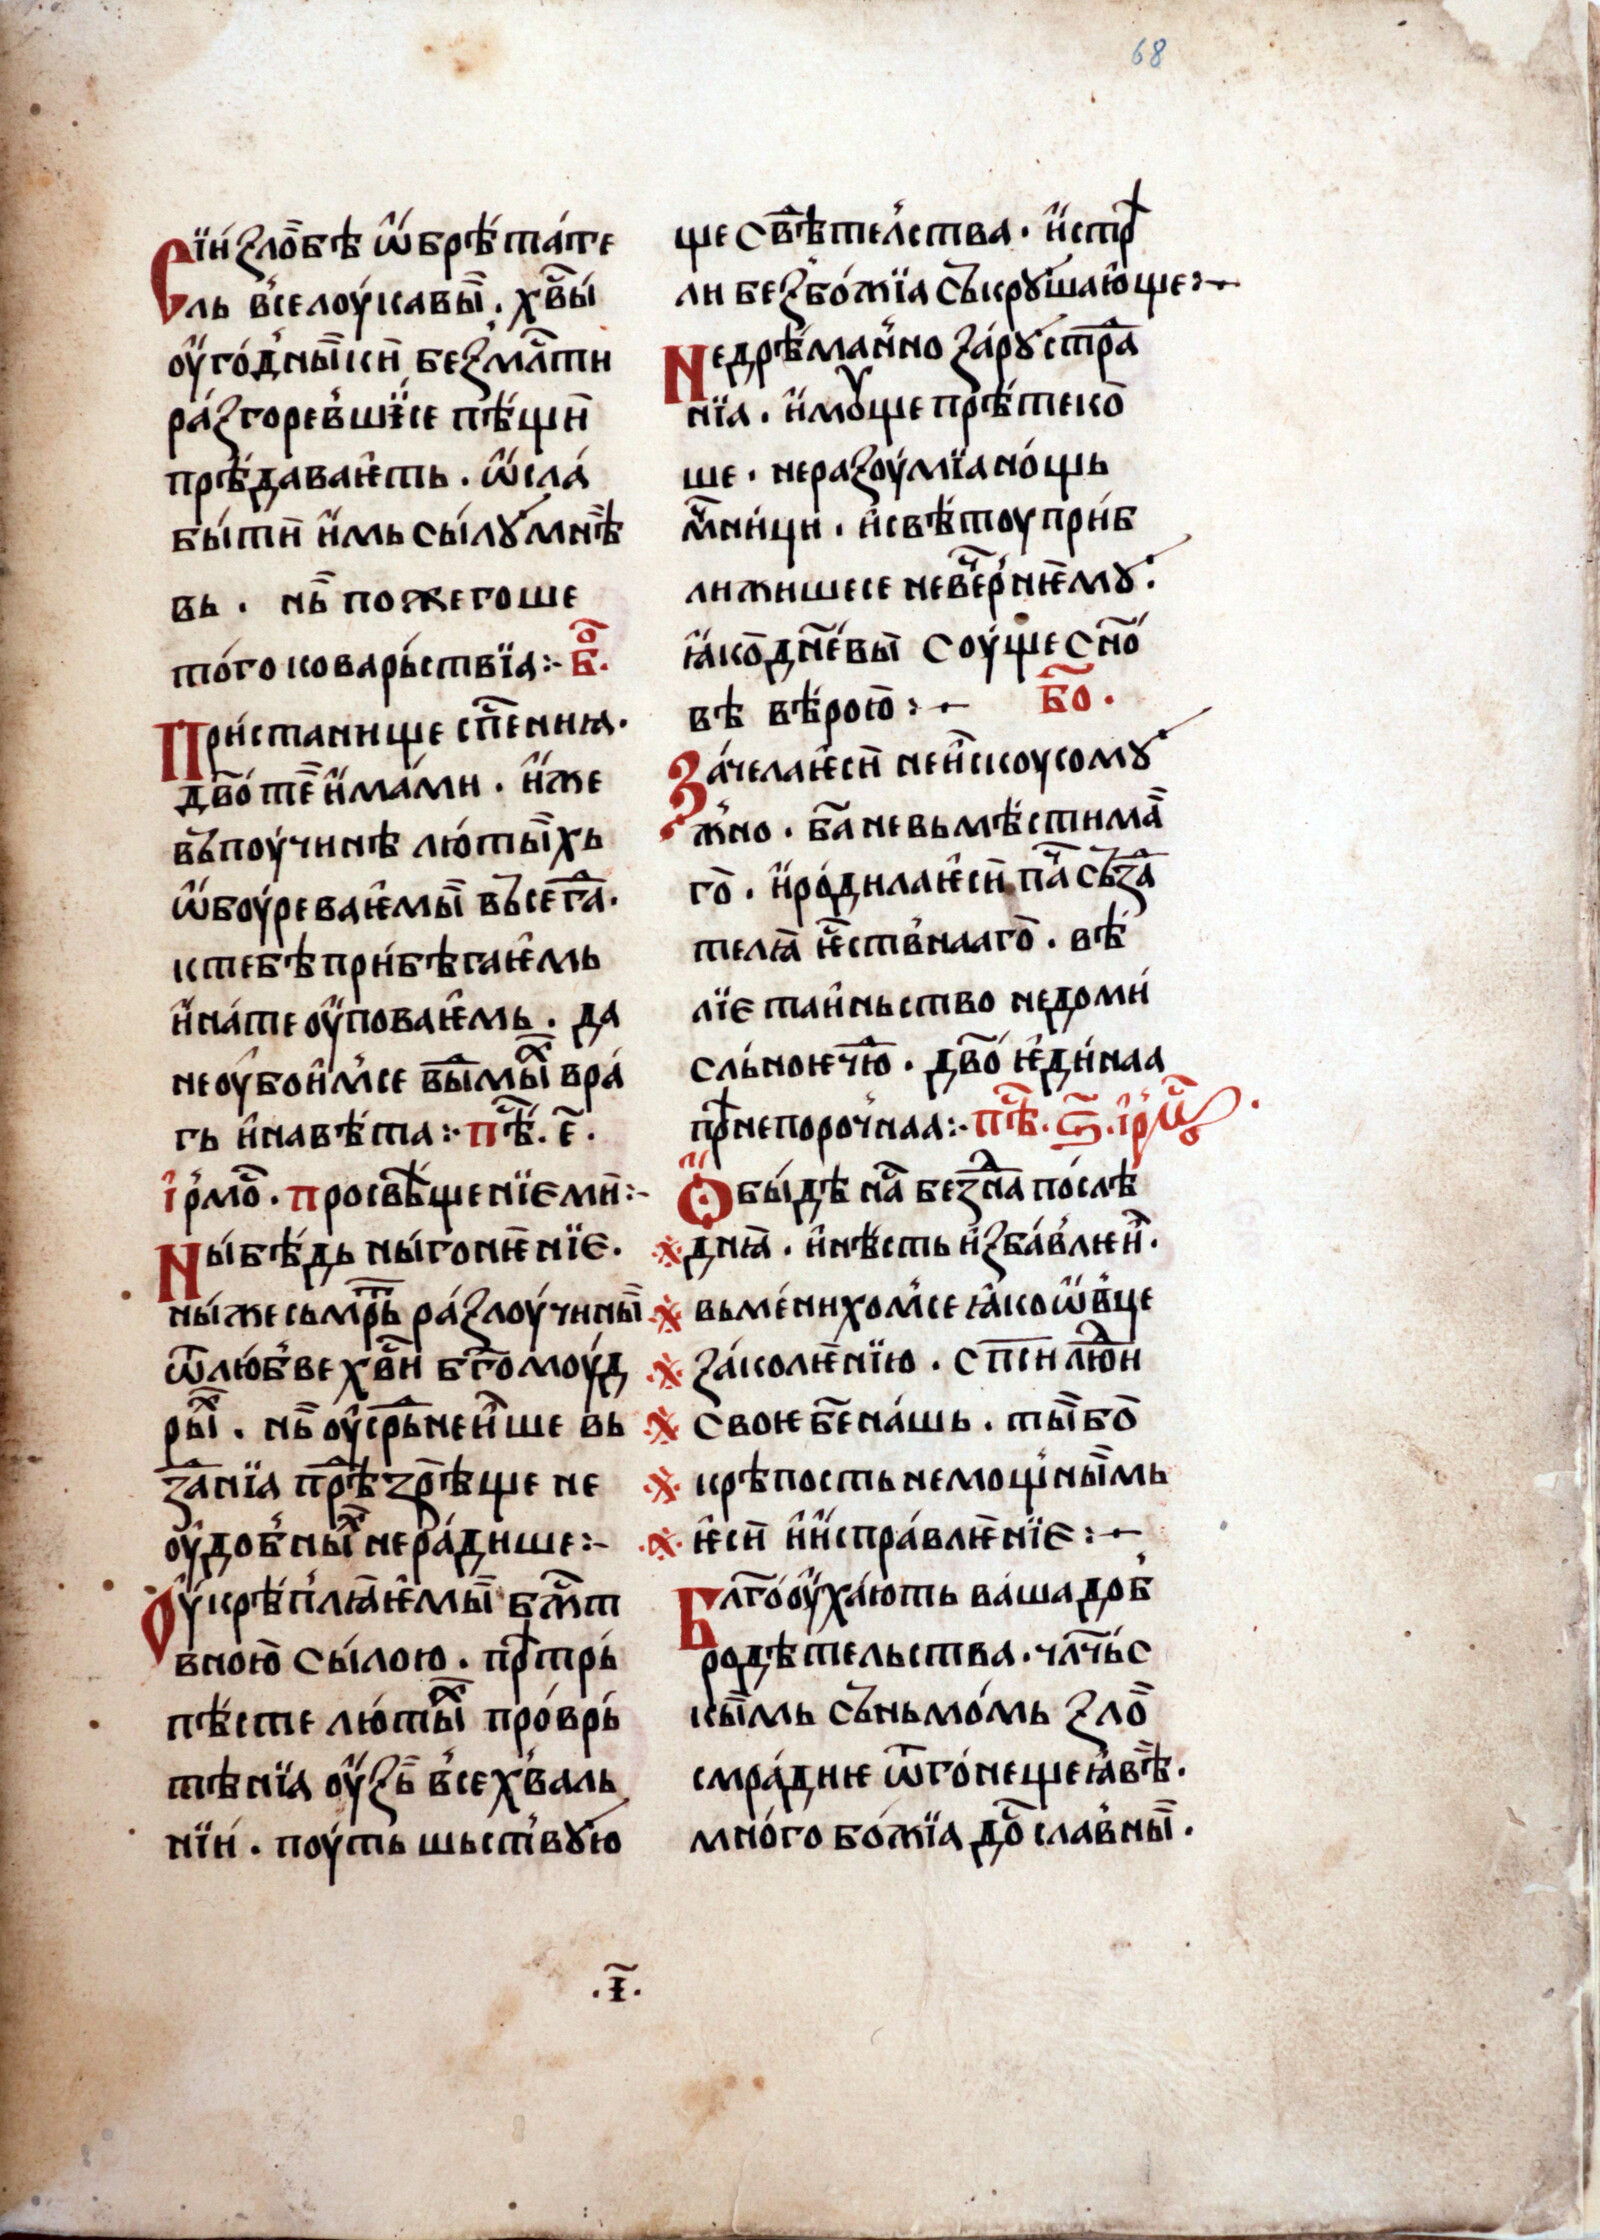 68
Сїи́ ꙁло́бѣ ѡ҆брѣта́те
ль в҆селоу́кавы̏и. хв҃ы
оу҆го́дныи̏кы беꙁмлⷭ҇тн
ра́ꙁгорев҆шїесе пѣ́щи
прѣ́даваѥть. ѡ҆сла́
бы́ти и҆мь сы́лꙋ мнѣ̏
вь. нь̏ пожегоше
то́го коварьствїа:- бо҃.
Пристанище сп҃ениꙗ.
дв҃о те̏ и҆ма́ми. и҆же
въпоучинѣ лю́ты̏хь
ѡ҆боуреваѥ҆мы̏ въсегⷣа.
ктебѣ при́бѣгаѥ҆мь
и҆на́те оу҆поваѥ҆мь. да
неоу҆боим҆се ви́мыⷯ вра́
гь и҆навѣ́та:· пѣⷭ҇. е҃.
і҆рмоⷭ҇. просвѣ́щенїе ми:-
Ны́ бѣ́дь ны́ гонѥнїе.
ны́же сьмрⷮь ра́ꙁлоу́чины̏
ѿлюб҆ве хв҃и бг҃омоу́д
рыⷯ. нь̏ оу҆срьднеи҆ше вь
ꙁданїа прѣ́ꙁрѣ́ще не
оу҆доб҆ныⷯ нера́дише:-
Оу҆крѣп҆лꙗѥ҆мы̏ бжⷭ҇т
вною сы́лою. прѣтрь
пѣ́сте лю́тыⷯ про́врь
тѣнїа оу҆ꙁь̏ в҆сех҆валь
нїи́. поу́ть шьст҆вꙋю
ще свѣ́тел҆ства. и҆стрѣ
ли беꙁбо́жїа съкрꙋшаю҆ще:-
Недрѣ́ман҆но ꙁа́рꙋ стра
нїа. и҆мꙋще прѣ́теко̏
ше. нераꙁоу́мїа но́щь
мⷱ҇ници. и҆свѣ́тоу при́б
лижишесе невече́рнѥмꙋ.
ꙗ҆ко дн҃евы̏ соу́ще сн҃о
вѣ вѣ́рою:- бо҃.
Зачелаѥ҆си неи҆скоусомꙋ
ж҆но. ба҃ невьмѣ́стима̏
го. и҆роди́лаѥ҆си пⷭ҇а съꙁда
телꙗ ѥⷭ҇ств҆нааго. вѣ́
лїе таи҆ньство недоми́
сльноѥ чю҆. дв҃о ѥ҆ди́наа
прѣнепороч҆наа:- пѣⷭ҇. ѕ҃. і҆рмоⷭ҇
Ѻ҆бы́дѣ ма̏ беꙁⷣна послѣ́
днꙗ. и҆нѣ́сть и҆ꙁба́влѥи.
вьмѣ́ни́хом҆се ꙗ҆ко ѡ҆в҆це
ꙁа́колѥнїю. сп҃си люⷣи
своѥ бе҃ на́шь. ты̏ бо̏
крѣпость немощ҆ны̏мь
ѥ҆си и҆и҆спра́влѥнїе:-
Блг҃ооу҆ха́ють ваша доб
родѣтельства. чл҃чьс
кы̏мь съньмо́мь ꙁло̏
смра́дниѥ ѿго́неще ꙗ҆вѣ̏.
мно́го бо́жїа досла́вны̏.
.і҃.